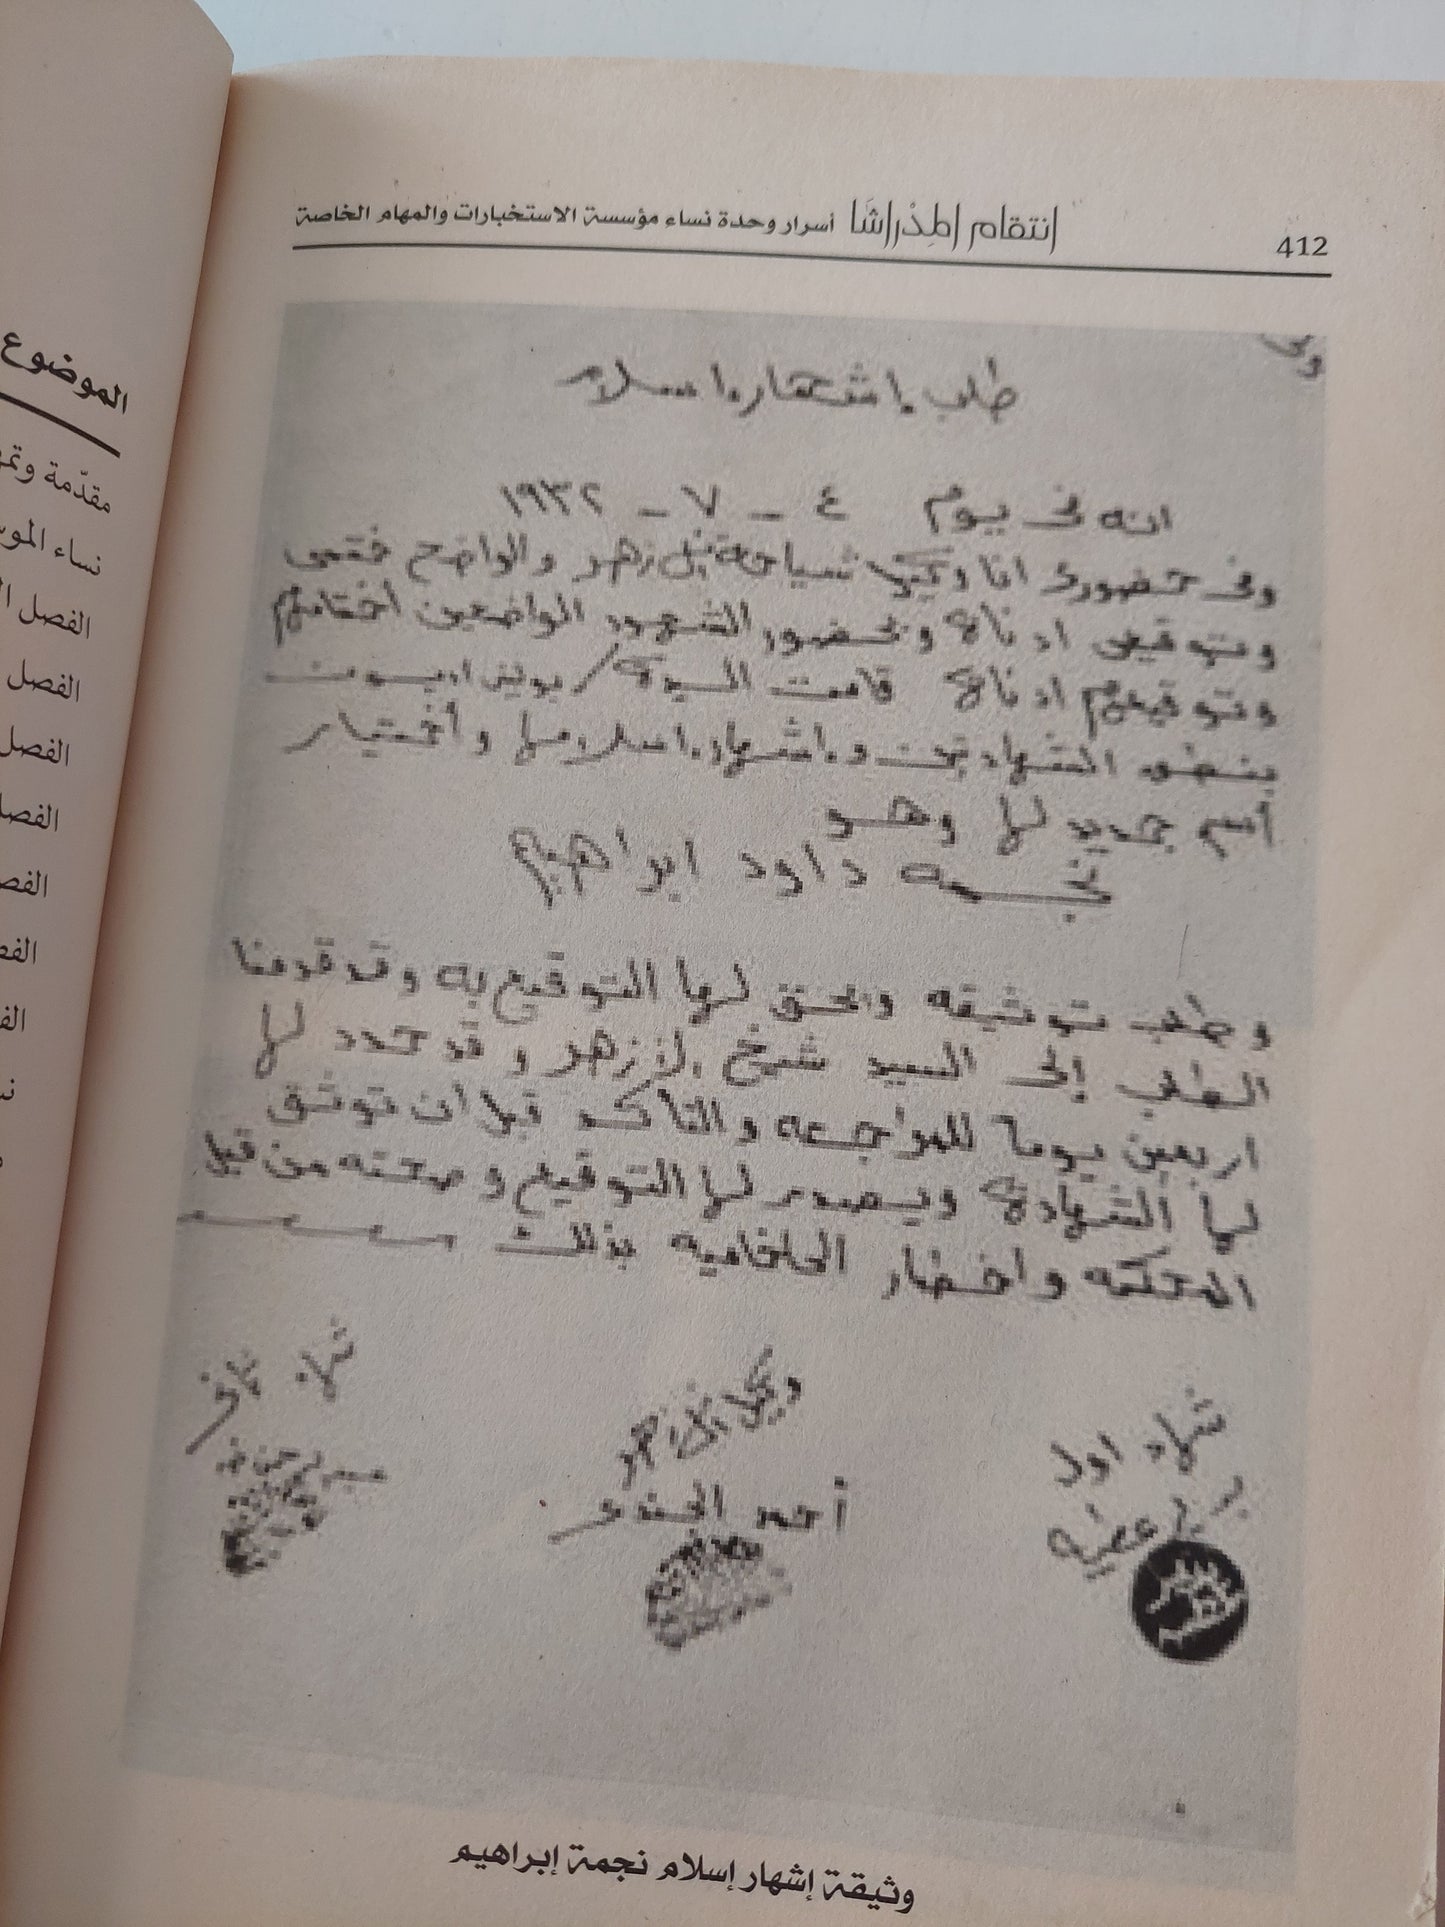 412
إنتقام المِدْراشَا أسرار وحدة نساء مؤسسة الاستخبارات والمهام الخاصة
طلب اشهار اسلام
انه فى يوم ٤ - ٧ - ١٩٣٢
وفى حضورى انا وكيل شياخة الازهر والواضح ختمى
وتوقيعى ادناه وبحضور الشهود الواضعين أختامهم
وتوقيعهم ادناه قامت السيدة / بولينى اديون
بنطق الشهادتين و اشهار اسلامها وأختيار
أسم جديد لها وهو
نجمه داود ابراهيم
وطلب توثيقه والحق لها التوقيع به وقد قدمنا
الطلب إلى السيد شيخ الازهر وقد حدد لها
اربعين يوما للمراجعه والتاكد قبل ان توثق
لها الشهادة ويصدر لها التوقيع وصحته من قبل
المحكمه واخطار الحاخاميه بذلك
شاهد اول
وكيل الازهر
شاهد ثانى
أحمد الجندى
وثيقة إشهار إسلام نجمة إبراهيم
الموضوع
مقدّمة
نساء
الفصل
الفصل
الفصل